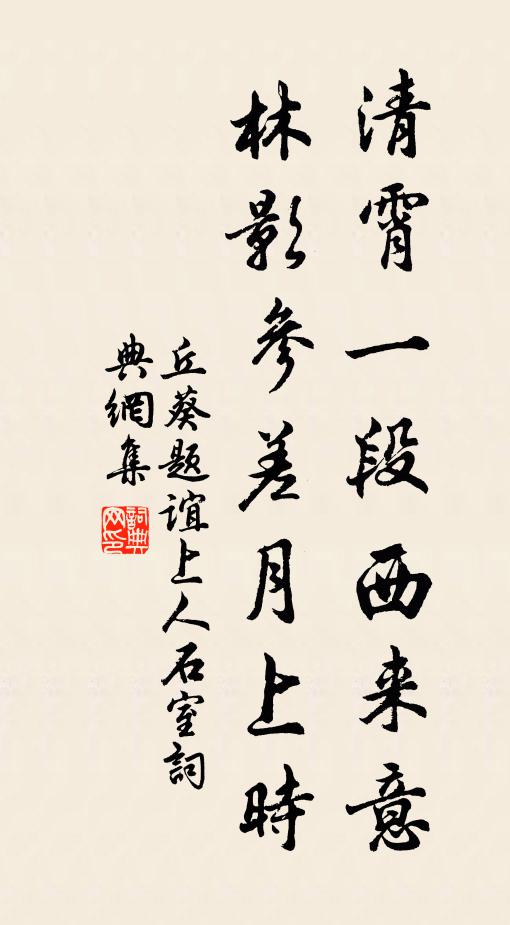 清霄一段西来意
林影參差月上時
丘葵题誼上人石室詞
典網集
詞典
网印